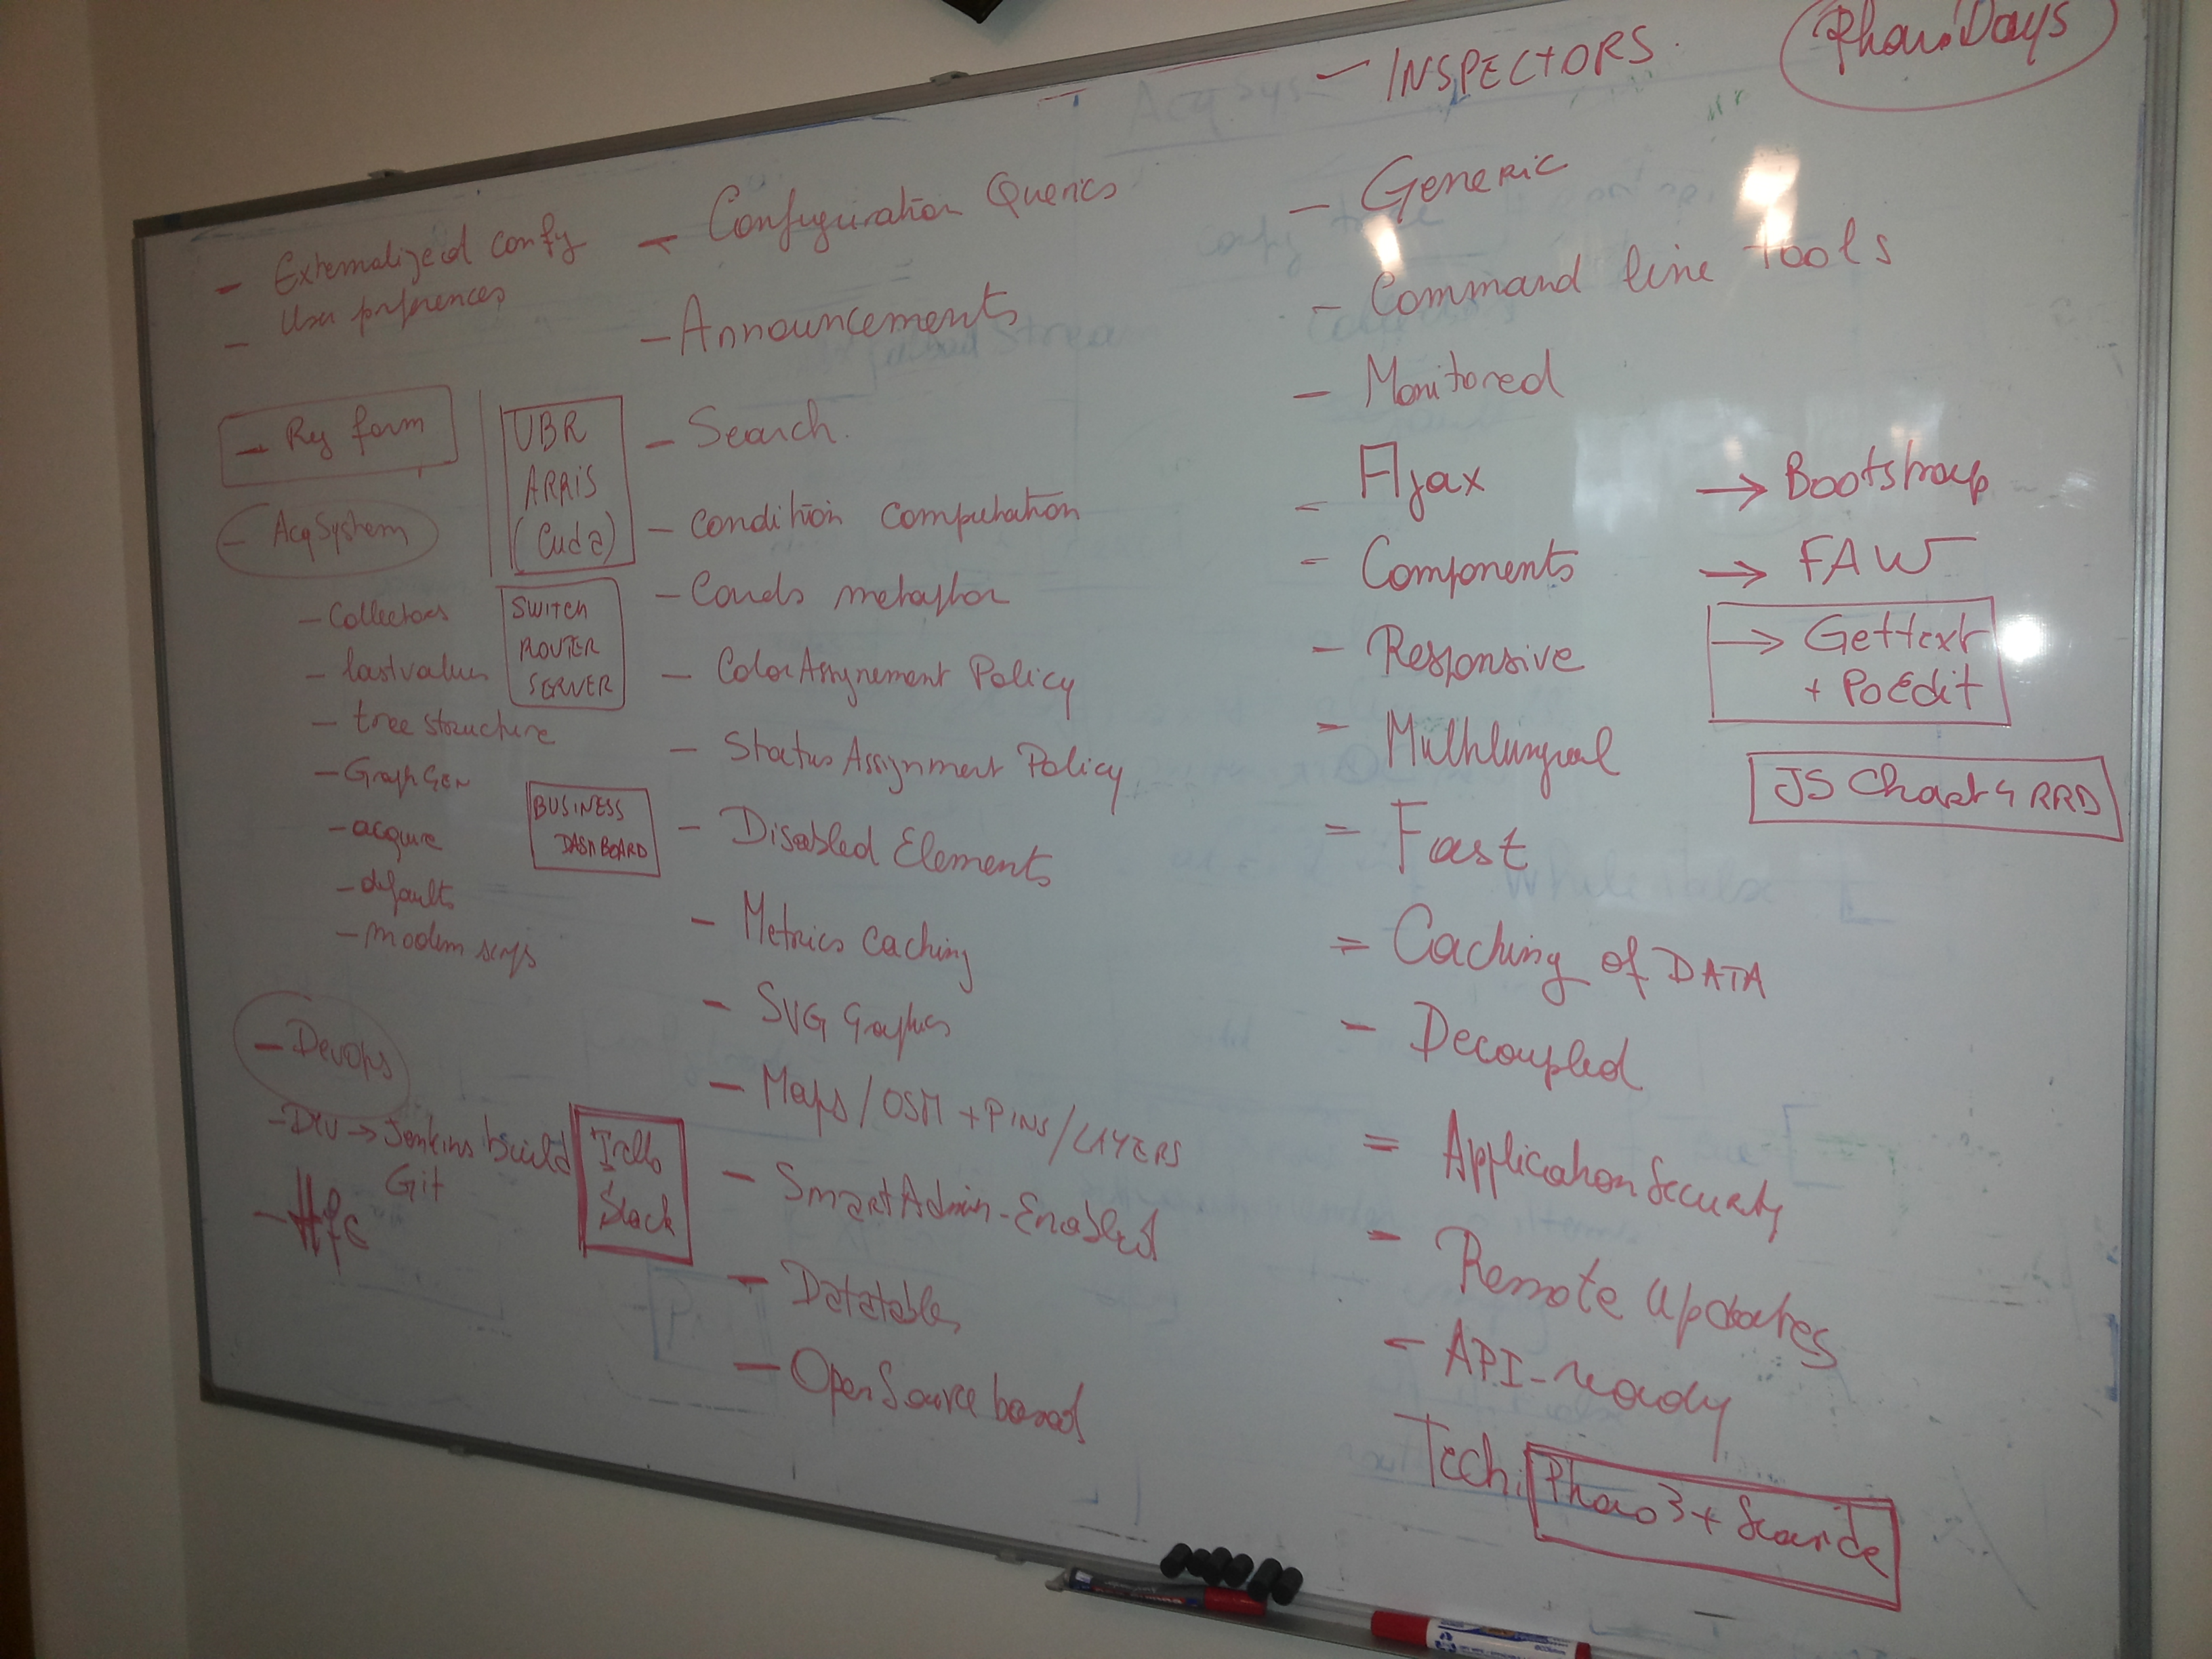 PharoDays
- INSPECTORS.
- Externalized config
- User preferences
- Reg form
- AcqSystem
- Collectors
- lastvalues
- tree structure
- GraphGen
- acquire
- defaults
- modem
- Devops
- Dev → Jenkins build
Git
- Hfc
UBR
ARRIS
(Cuda)
SWITCH
ROUTER
SERVER
BUSINESS
DASHBOARD
Trello
Slack
- Configuration Queries
- Announcements
- Search.
- Condition computation
- Conds metaphor
- Color Assignement Policy
- Status Assignment Policy
- Disabled Elements
- Metrics Caching
- SVG Graphics
- Maps / OSM + PINS / LAYERS
- SmartAdmin-Enabled
- Datatables
- OpenSource based
- Generic
- Command line tools
- Monitored
- Ajax
- Components
- Responsive
- Multilingual
- Fast
- Caching of DATA
- Decoupled
- Application Security
- Remote Updates
- API-ready
Tech. Pharo 3 + Seaside
→ Bootstrap
→ FAW
→ Gettext
+ PoEdit
JS Chart 4 RRD